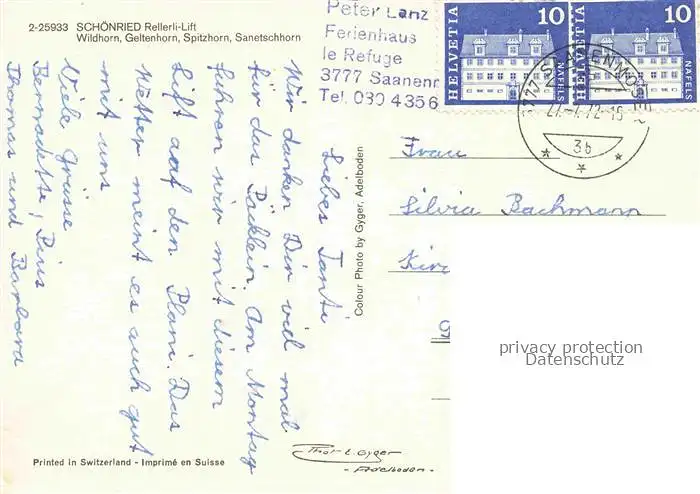 2-25933 SCHÖNRIED Rellerli-Lift
Wildhorn, Geltenhorn, Spitzhorn, Sanetschhorn
Peter Lanz
Ferienhaus
le Refuge
3777 Saanenm
Tel. 030 4356
HELVETIA 10 NÄFELS
HELVETIA 10 NÄFELS
3b
Liebes Tanti
Wir danken Dir viel mal
für das Päcklein. Am Montag
fuhren wir mit diesem
Lift auf den Plani. Das
Wetter meint es auch gut
mit uns
Viele Grüsse
Bernadette, Pius
Thomas und Barbara
Colour Photo by Gyger, Adelboden
Frau
Silvia Bachmann
privacy protection
Datenschutz
Printed in Switzerland - Imprimé en Suisse
Gyger
-Adelboden-